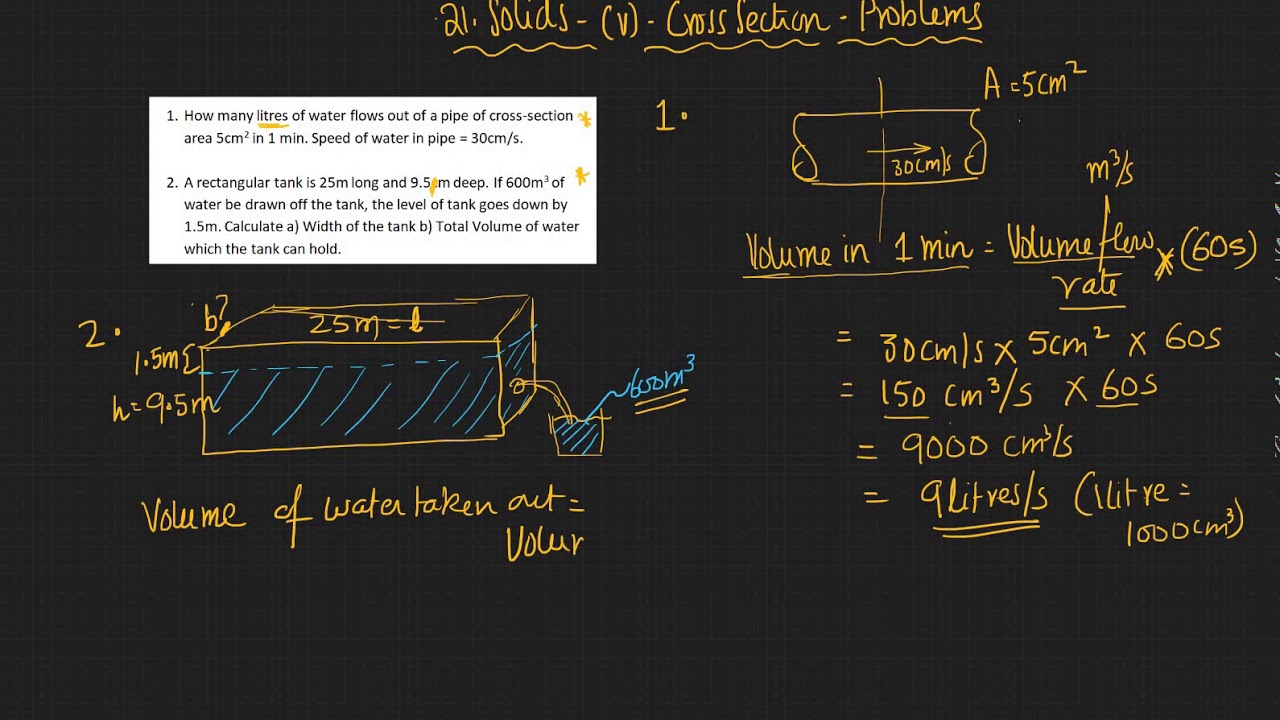 21. Solids - (v) - Cross Section - Problems
1. How many litres of water flows out of a pipe of cross-section *
area 5cm² in 1 min. Speed of water in pipe = 30cm/s.
2. A rectangular tank is 25m long and 9.5 m deep. If 600m³ of *
water be drawn off the tank, the level of tank goes down by
1.5m. Calculate a) Width of the tank b) Total Volume of water
which the tank can hold.
1.
A = 5cm²
30cm/s
m³/s
Volume in 1 min = Volume flow rate × (60s)
= 30cm/s × 5cm² × 60s
= 150 cm³/s × 60s
= 9000 cm³/s
= 9 litres/s (1 litre =
1000cm³)
2.
b?
25m = l
1.5m
h = 9.5m
600m³
Volume of water taken out =
Volur